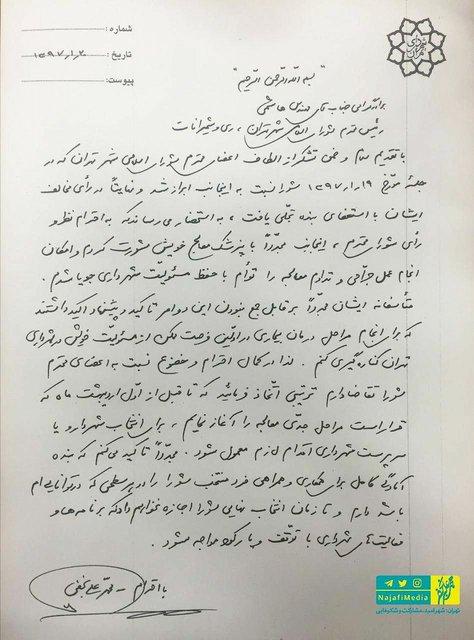 شماره :
تاریخ : ۱۳۹۷/۱/۲۰
پیوست :
"بسم الله الرحمن الرحیم"
برادر گرامی جناب آقای مهندس هاشمی
رئیس محترم شورای اسلامی شهر تهران، ری و شمیرانات
با تقدیم سلام و ضمن تشکر از الطاف اعضای محترم شورای اسلامی شهر تهران که در
جلسه مورّخ ۱۳۹۷/۱/۱۹ شورا نسبت به اینجانب ابراز شد و نهایتاً در رأی مخالف
ایشان با استعفای بنده تجلّی یافت، به استحضار می‌رساند که به احترام نظر و
رأی شورای محترم، اینجانب مجدّداً با پزشک معالج خویش مشورت کردم و امکان
انجام عمل جراحی و تداوم معالجه را توأم با حفظ مسئولیت شهرداری جویا شدم.
متأسفانه ایشان مجدّداً بر قابل جمع نبودن این دو امر تأکید و پیشنهاد اکید داشتند
که برای انجام مراحل درمان بیماری در اوّلین فرصت ممکن از مسئولیت خویش در شهرداری
تهران کناره‌گیری کنم. لذا در کمال احترام و خضوع نسبت به اعضای محترم
شورا تقاضا دارم ترتیبی اتّخاذ فرمائید که تا قبل از اوّل اردیبهشت ماه که
قرار است مراحل جدّی معالجه را آغاز نمایم، برای انتخاب شهردار و یا
سرپرست شهرداری اقدام لازم معمول شود. مجدّداً تأکید می‌کنم که بنده
آمادگی کامل برای همکاری و همراهی فرد منتخب شورا را در هر سطحی که در توانایی‌ام
باشد دارم و تا زمان انتخاب نهایی شورا اجازه نخواهم داد که برنامه‌ها و
فعالیت‌های شهرداری با توقّف و یا رکود مواجه شود.
با احترام - محمدعلی نجفی
NajafiMedia
تهران: شهر امید، مشارکت و شکوفایی